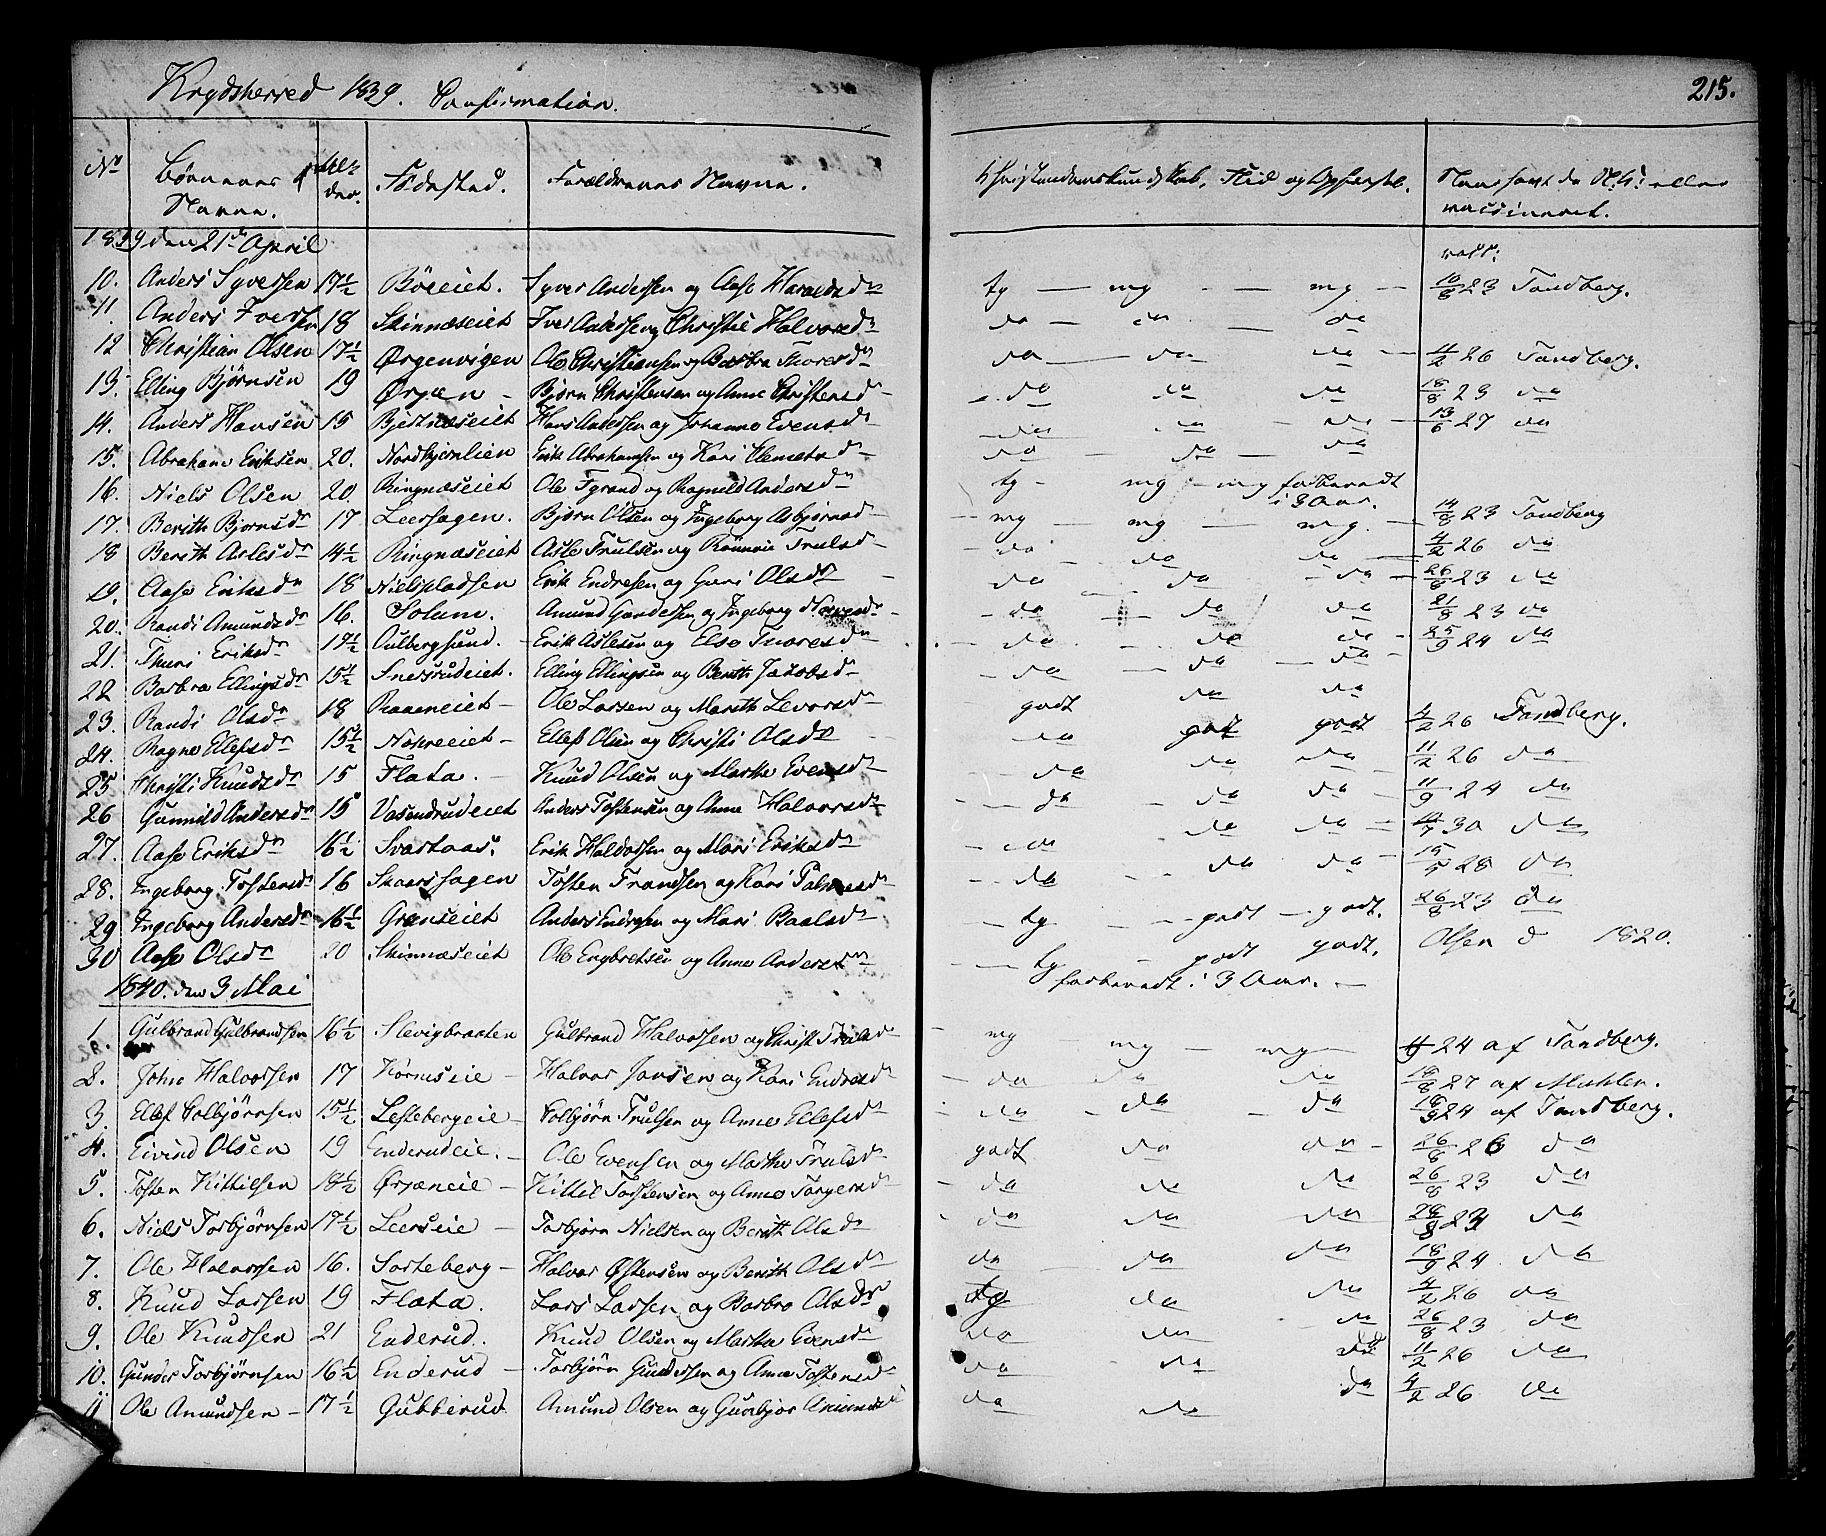 Krydsherred 1839. Confirmation.
215.
No Børnenes Navne. Alder. Fødested. Forældrenes Navne. Christendomskundskab, Flid og Opførsel. eller vaccineret.
1839 den 21de April vacc:
10. Anders Syversen 17½ Böeeiet. Syver Andersen og Aase Haraldsdr tg — mg — mg — 23 Tandberg.
11. Anders Iversen 18 Skinnæseiet Iver Andersen og Christie Halvorsdr do — do — do
12 Christian Olsen 17½ Ørgenvigen Ole Christiansen og Barbra Thoresdr do — do do — 11/2 26 Tandberg.
13. Elling Bjørnsen 19 Ørgen — Bjørn Christensen og Anne Christensdr do do do 18/8 23 do
14. Anders Hansen 15 Hans Andersen og Johanne Evensdr do do — do — 13/6 27 do
15. Abraham Eriksen 20. Nordbjernlien Erik Abrahamsen og Kari Clemetsdr do — do — do
16. Niels Olsen 20. Ringnæseiet Ole og Ragnild Andersdr tg — mg — mg forberedt i 3 Aar.
17. Berith Bjornsdr 17 Leersagen. Bjørn Olsen og Ingeborg Asbjørnsd mg — mg — mg — 14/8 23 Tandberg
18 Berith Aslesdr 14½ Ringnæseiet Asle Trulsen og Trulsd do — do do 4/2 26 do
19. Aase Eriksdr 18 Nielspladsen Erik Endresen og Guri Olsdr do do — do — 26/8 23 do
20. Randi Amundsdr 16. Solum. Amund Gundersen og Ingeborg do do do 21/8 23 do
21. Thuri Eriksdr Aulbergsund. Erik Aslesen og Else Thoresdr do — do do — 25/9 24 do
22 Barbra Ellingsdr 15½ Snersrudeiet. Elling Ellingsen og Berith Jacobsdr do — do — do
23. Randi Olsdr 18 Raaeneiet — Ole Larsen og Marith Leversd godt do do
24. Ragne Ellefsdr 15½ Ellef Olsen og Christi Olsdr do godt godt 4/2 26 Tandberg.
25 Knudsdr 15 Flata. — Knud Olsen og Marthe Evensdr do do do 11/2 26 do
26 Gunnild Andersdr 15 Vasendrudeiet Anders Tostensen og Anne Halvorsdr do do do — 11/9 24 do
27. Aase Eriksdr 16½ Svartaas. Erik Haldorsen og Mari Eriksdr do do do 30 do
28. Ingeborg Tostensdr 16 Skaarsagen Tosten Trondsen og Kari Palmesdr do do do 28 do
29 Ingeborg Andersdr 16½ Grenseiet Anders Endresen og Mari Baalsdr tg — godt — godt. 26/8 23 do
30 Aase Olsdr 20 Skinnæseiet Ole Engbretsen og Anne Andersdr tg — godt godt. Olsen d 1820.
forberedt i 3 Aar. —
1840. den 3 Mai
1. Gulbrand Gulbrandsen 16½ Slevigbraaten Gulbrand Halvorsen og mg — mg — mg — 24 af Tandberg.
2. John Halvorsen 17 Halvor Jonsen og Kari Endresdr do do do 18/8 27 af Muhler.
3. Ellef Colbjørnsen 15½ Leslebergeie — Colbjørn Trulsen og Anne Ellefsdr do — do — do 24 af Tandberg.
4. Eivind Olsen 19 Enderudeie. — Ole Evensen og Marthe Trulsdr godt do do — 26/8 26 do
5. Tosten Kittilsen 18½ Ørgeneie — Kittil Torstensen og Anne Torgersdr do do do 26/8 23 do
6. Niels Torbjørnsen 17½ Leerseie — Torbjørn Nielsen og Berith Olsdr do do do 23 do
7. Ole Halvorsen 16. Sorteberg — Halvor Østensen og Berith Olsdr do do do 18/9 24 do
8. Knud Larsen 19 Flata. Lars Larsen og Barbro Olsdr tg do do 4/2 26 do
9. Ole Knudsen 21 Enderud. Knud Olsen og Marthe Evensdr do do do 26/8 23 do
10. Gunder Torbjørnsen 16½ Enderud — Torbjørn Gundersen og Anne Tostensdr do do do 11/2 26 do
11 Ole Amundsen — 17½ Gubberud Amund Olsen og Gunbjør do do do 4/2 26 do